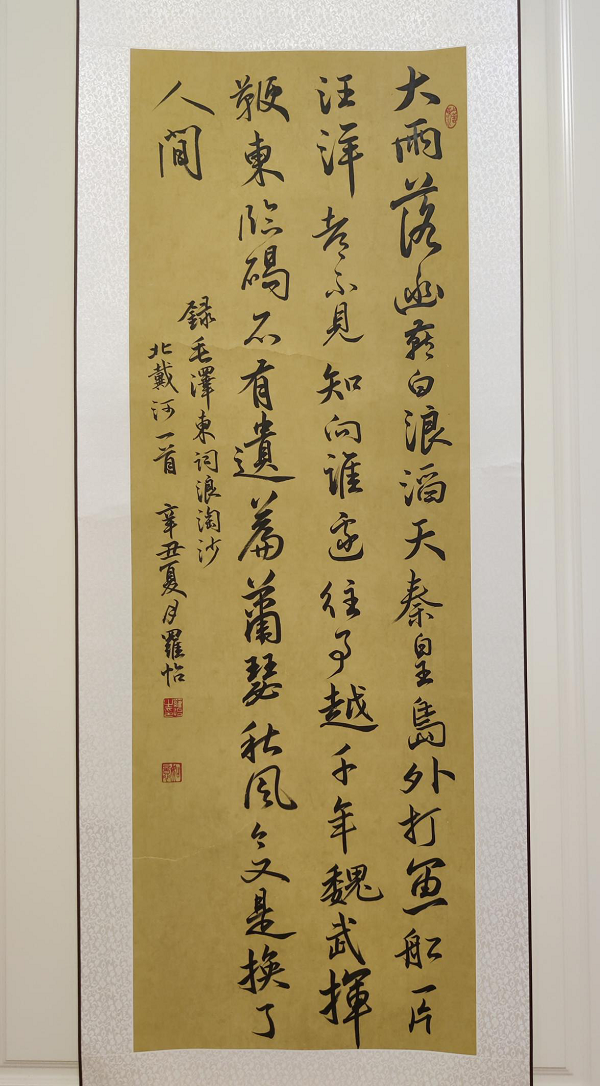 大雨落幽燕白浪滔天秦皇島外打魚船一片
汪洋都不見知向誰邊往事越千年魏武揮
鞭東臨碣石有遺篇蕭瑟秋風今又是換了
人間
録毛澤東詞浪淘沙
北戴河一首 辛丑夏月羅怡